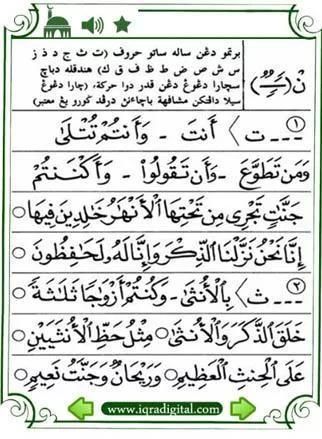 برتمو دڠن ساله ساتو حروف (ت ث ج د ذ ز
س ش ص ض ط ظ ف ق ك) هندقله دباچ
سچارا دڠوڠ دڠن قدر دوا حركة، (چارا دڠوڠ
سيلا دافتكن مشافهة باچاءنڽ درفد كورو يڠ معتبر)
نْ (ــًــٍــٌ)
١ --- ت 〉 أَنتَ - وَأَنتُمْ تُتْلَىٰ
وَمَن تَطَوَّعَ - وَأَن تَقُولُوا۟ - وَأَكْنَنتُمْ
جَنَّٰتٍ تَجْرِى مِن تَحْتِهَا الْأَنْهَٰرُ خَٰلِدِينَ فِيهَا
إِنَّا نَحْنُ نَزَّلْنَا الذِّكْرَ وَإِنَّا لَهُۥ لَحَٰفِظُونَ
٢ --- ث 〉 بِالْأُنثَىٰ - وَكُنتُمْ أَزْوَٰجًا ثَلَٰثَةً
خَلَقَ الذَّكَرَ وَالْأُنثَىٰ مِثْلُ حَظِّ الْأُنثَيَيْنِ
عَلَى الْحِنثِ الْعَظِيمِ وَرَيْحَانٌ وَجَنَّتُ نَعِيمٍ
www.iqradigital.com